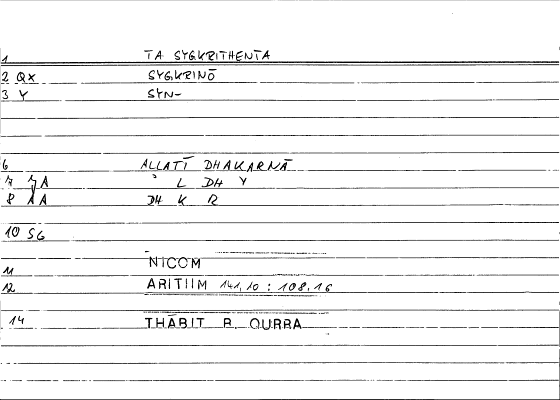 1 TA SYGKRITHENTA
2 QX SYGKRINŌ
3 Y SYN-
6 ALLATĪ DHAKARNĀ
7 L DH Y
8 DH K R
10 SG
11 NICOM
12 ARITIIM 141,10 : 108,16
14 THĀBIT B. QURRA